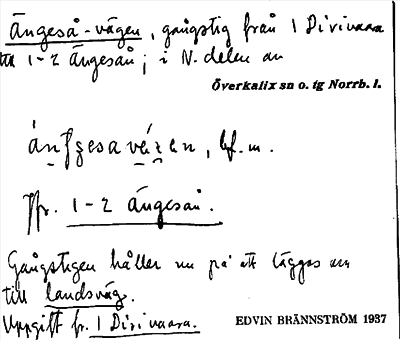 Ängeså-vägen, gångstig från 1 Dirivaara
till 1-2 Ängesån; i N. delen av
Överkalix sn o. tg Norrb. l.
bf. m.
Jfr. 1-2 Ängesån.
Gångstigen håller nu på att läggas om
till landsväg.
Uppgift fr. 1 Dirivaara.
EDVIN BRÄNNSTRÖM 1937